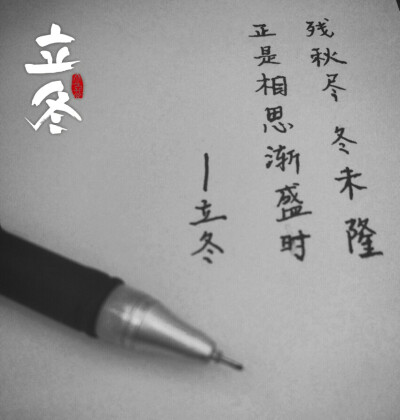 立冬
残秋尽 冬未隆
正是相思渐盛时
—立冬